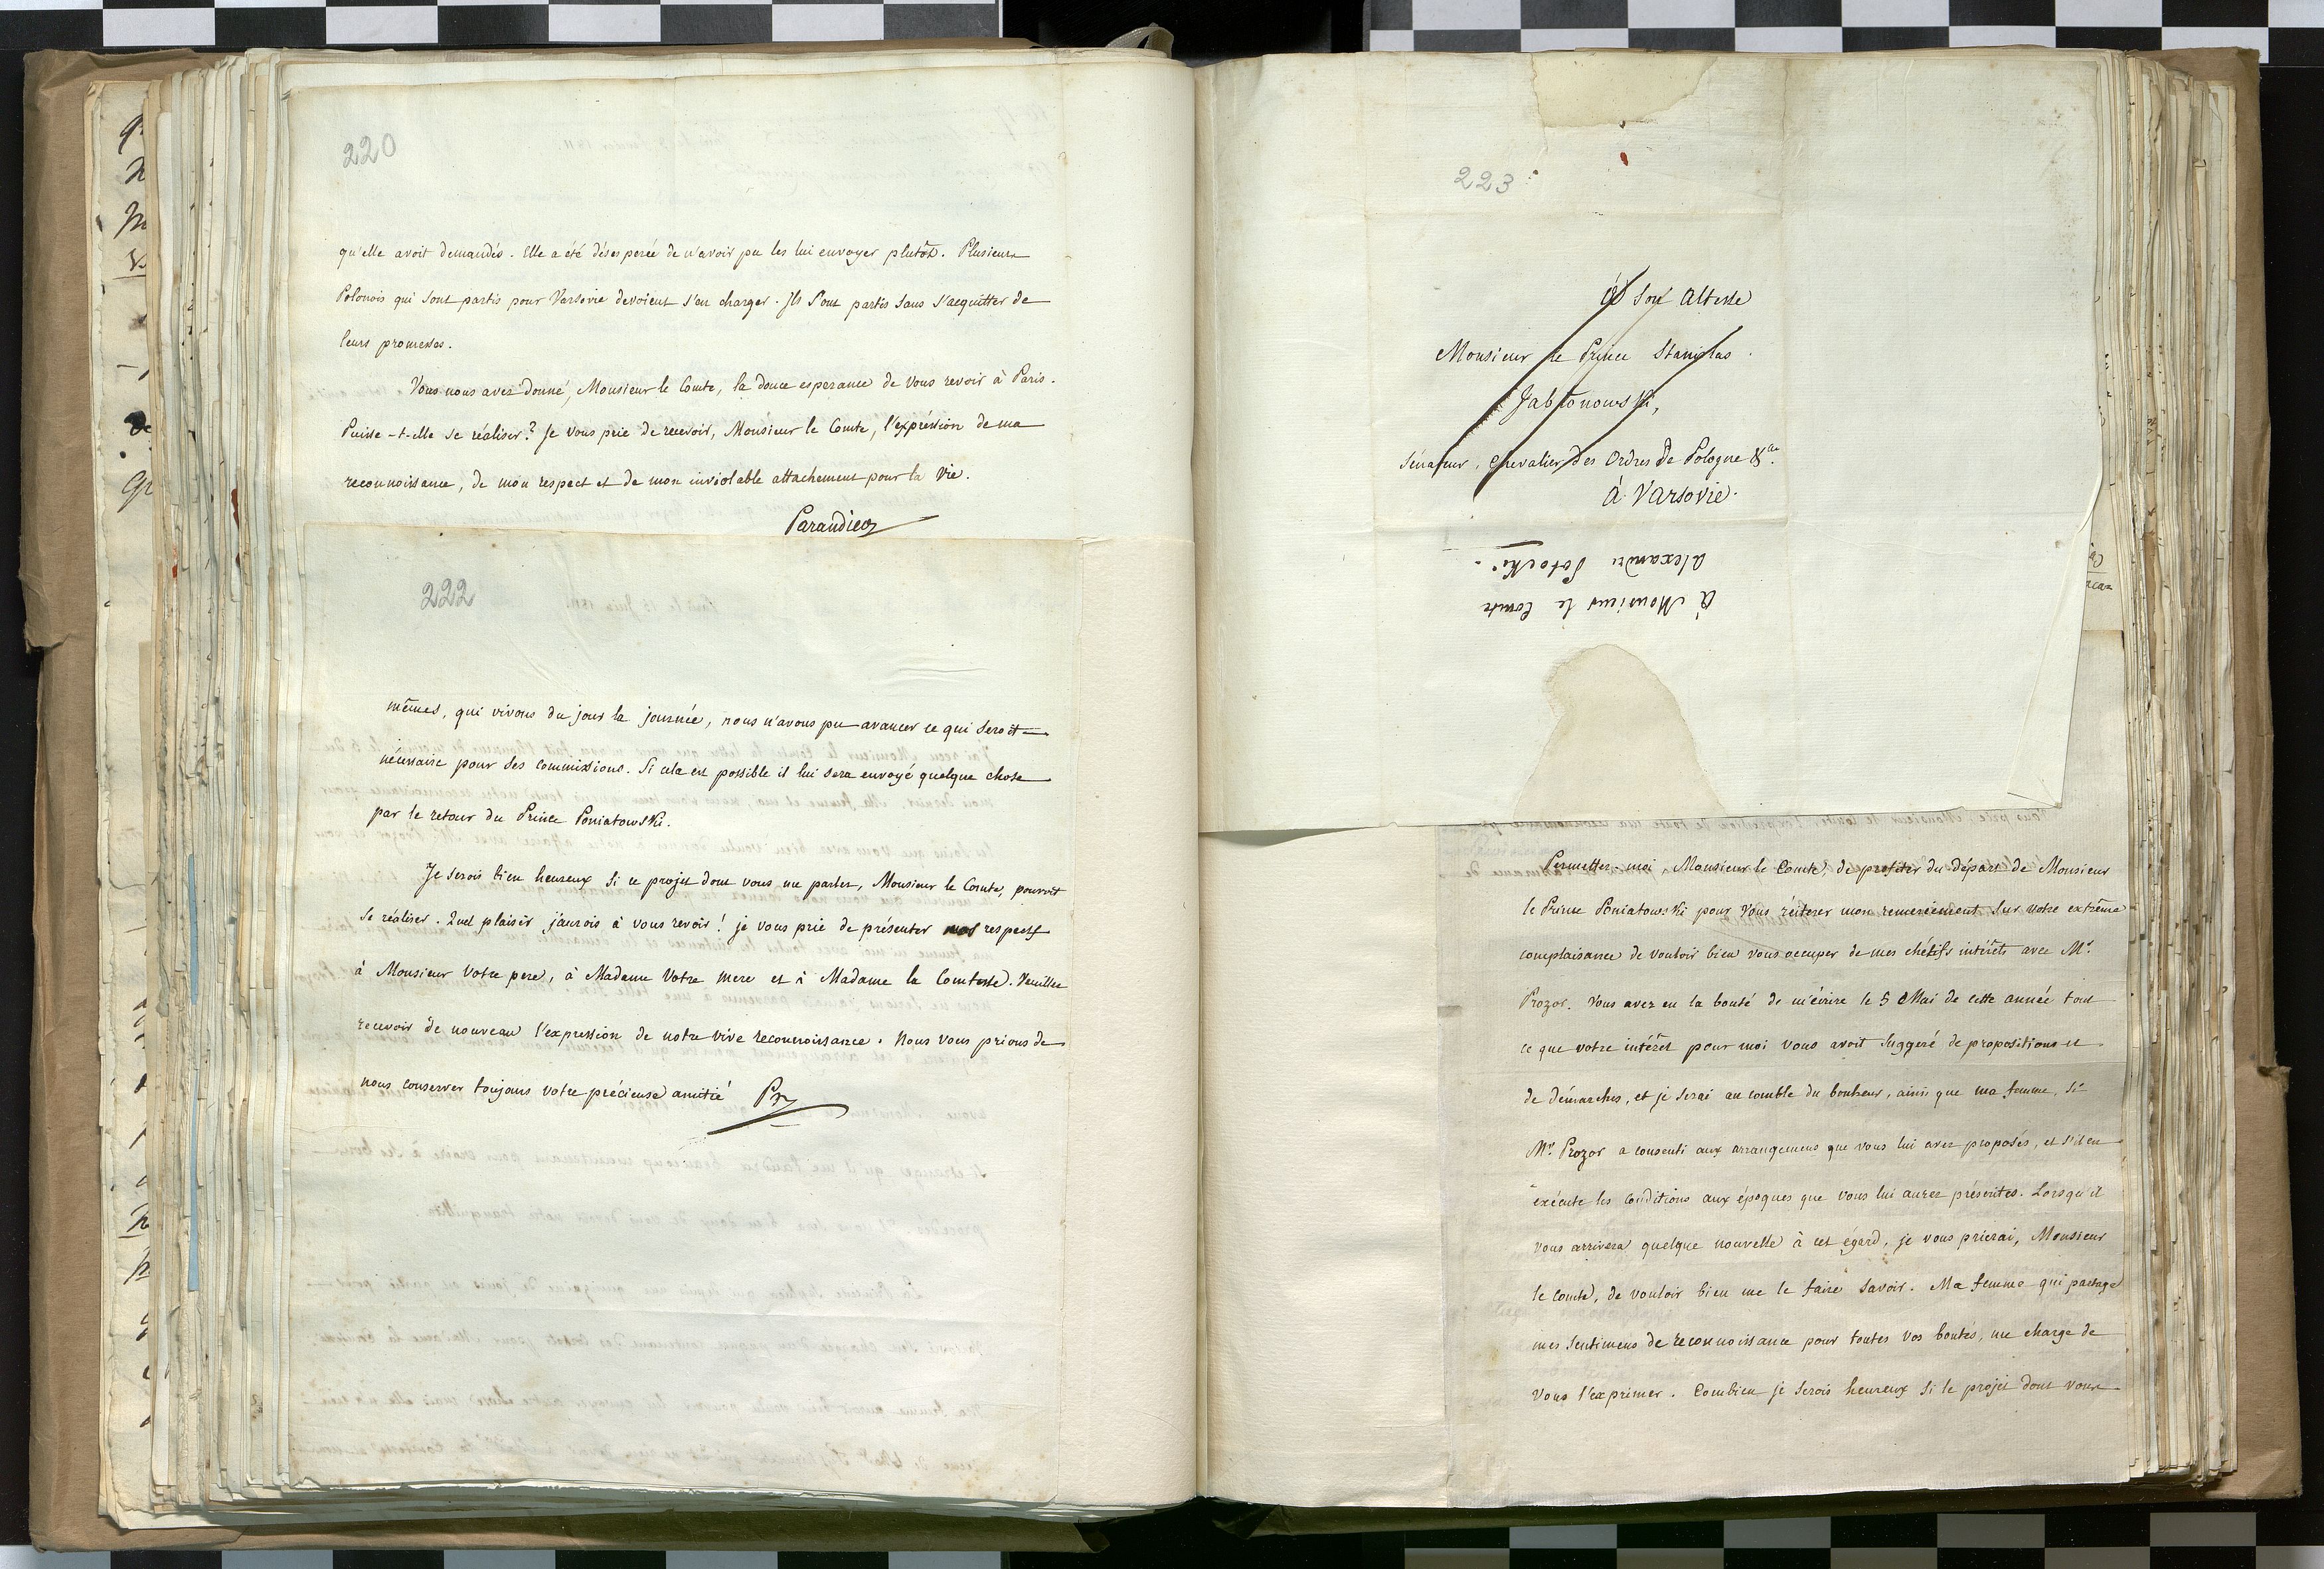 220
qu'elle avoit demandés. Elle a été désesperée de n'avoir pu les lui envoyer plutôt. Plusieurs
Polonois qui sont partis pour Varsovie devoient s'en charger. Ils sont partis sans s'acquitter de
leurs promesses.
Vous nous avez donné, Monsieur le Comte, la douce esperance de vous revoir à Paris.
Puisse-t-elle se réaliser? Je vous prie de recevoir, Monsieur le Comte, l'expression de ma
reconnoissance, de mon respect et de mon inviolable attachement pour la vie.
Parandier
222
mêmes, qui vivons du jour la journée, nous n'avons pu avancer ce qui seroit
nécessaire pour ses commissions. Si cela est possible il lui sera envoyé quelque chose
par le retour du Prince Poniatowski.
Je serois bien heureux si ce projet dont vous me parlez, Monsieur le Comte, pouvoit
se réaliser. Quel plaisir j'aurois à vous revoir! je vous prie de présenter mes respects
à Monsieur votre pere, à Madame votre mere et à Madame la Comtesse. Veuillez
recevoir de nouveau l'expression de notre vive reconnoissance. Nous vous prions de
nous conserver toujours votre précieuse amitié Pr
223
à Son Altesse
Monsieur le Prince Stanislas
Jabłonowski,
Sénateur, Chevalier des Ordres de Pologne &a.
à Varsovie.
à Monsieur le Comte
Alexandre Potocki.
Permettez-moi, Monsieur le Comte, de profiter du départ de Monsieur
le Prince Poniatowski pour vous reiterer mon remerciement sur votre extrême
complaisance de vouloir bien vous occuper de mes chétifs intérêts avec Mr.
Prozor. Vous avez eu la bonté de m'écrire le 5 Mai de cette année tout
ce que votre intérêt pour moi vous avoit suggeré de propositions et
de démarches, et je serai au comble du bonheur, ainsi que ma femme, si
Mr. Prozor a consenti aux arrangemens que vous lui avez proposés, et s'il en
exécute les conditions aux époques que vous lui aurez présentes. Lorsqu'il
vous arrivera quelque nouvelle à cet égard, je vous prierai, Monsieur
le Comte, de vouloir bien me le faire savoir. Ma femme qui partage
mes sentimens de reconnoissance pour toutes vos bontés, me charge de
vous l'exprimer. Combien je serois heureux si le projet dont vous